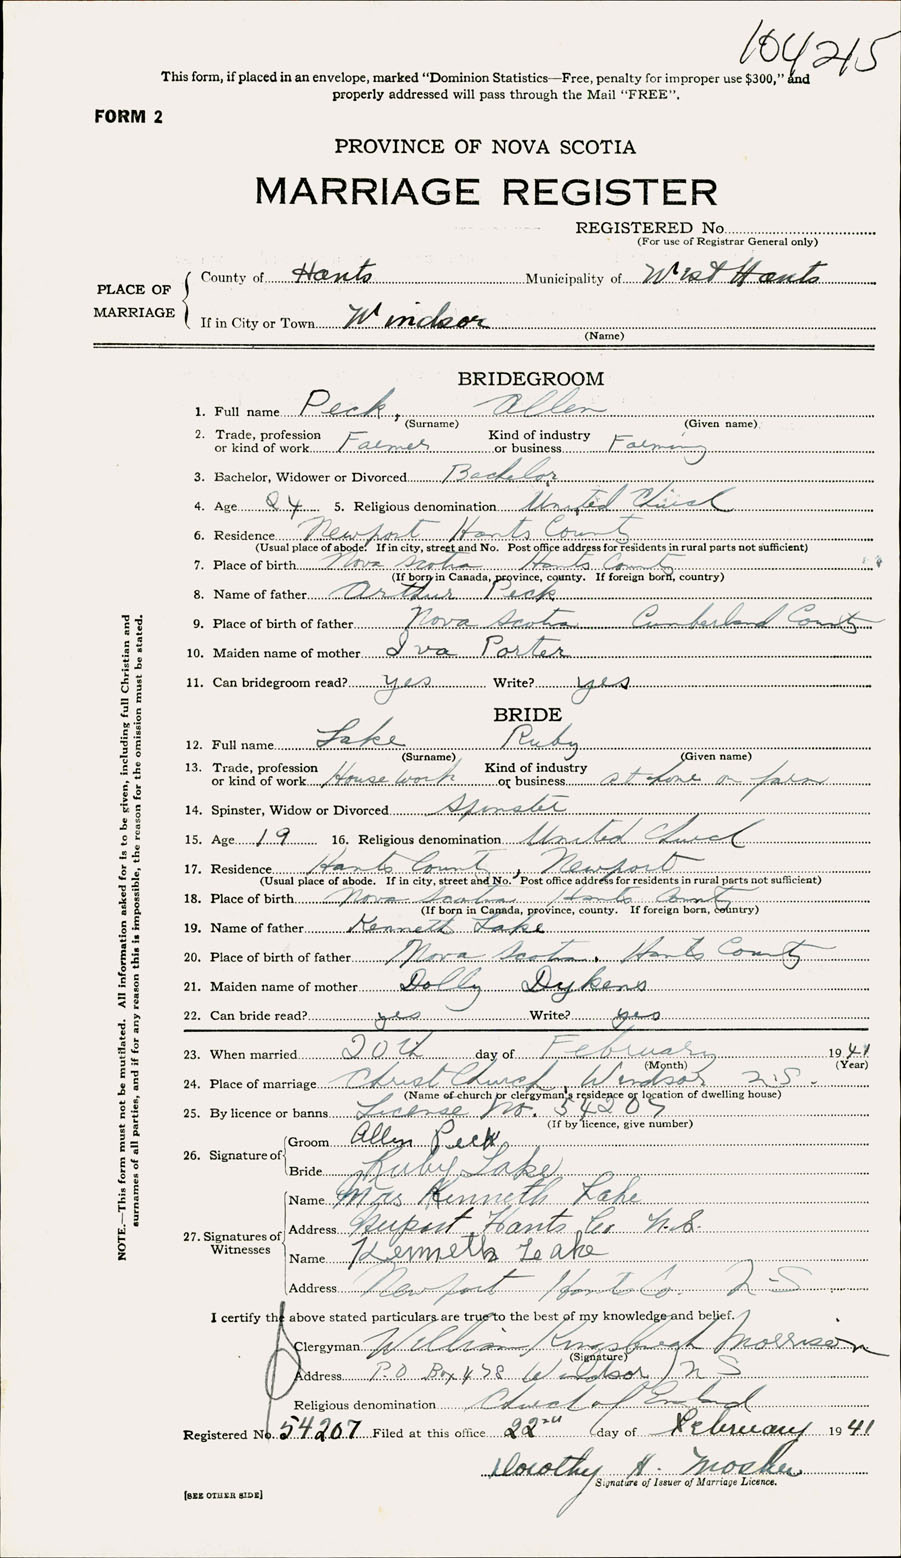 104215
This form, if placed in an envelope, marked "Dominion Statistics—Free, penalty for improper use $300," and
properly addressed will pass through the Mail "FREE".
FORM 2
PROVINCE OF NOVA SCOTIA
MARRIAGE REGISTER
REGISTERED No.
(For use of Registrar General only)
PLACE OF MARRIAGE
County of Hants Municipality of West Hants
If in City or Town Windsor
(Name)
BRIDEGROOM
1. Full name Peck, Allen
(Surname) (Given name)
2. Trade, profession or kind of work Farmer Kind of industry or business Farming
3. Bachelor, Widower or Divorced Bachelor
4. Age 24 5. Religious denomination United Church
6. Residence Newport Hants County
(Usual place of abode. If in city, street and No. Post office address for residents in rural parts not sufficient)
7. Place of birth Nova Scotia Hants County
(If born in Canada, province, county. If foreign born, country)
8. Name of father Arthur Peck
9. Place of birth of father Nova Scotia Cumberland County
10. Maiden name of mother Iva Porter
11. Can bridegroom read? yes Write? yes
BRIDE
12. Full name Lake Ruby
(Surname) (Given name)
13. Trade, profession or kind of work Housework Kind of industry or business at home on farm
14. Spinster, Widow or Divorced Spinster
15. Age 19 16. Religious denomination United Church
17. Residence Hants County, Newport
(Usual place of abode. If in city, street and No. Post office address for residents in rural parts not sufficient)
18. Place of birth Nova Scotia Hants County
(If born in Canada, province, county. If foreign born, country)
19. Name of father Kenneth Lake
20. Place of birth of father Nova Scotia. Hants County
21. Maiden name of mother Dolly Dykens
22. Can bride read? yes Write? yes
23. When married 20th day of February 1941
(Month) (Year)
24. Place of marriage Christ Church, Windsor N.S.
(Name of church or clergyman's residence or location of dwelling house)
25. By licence or banns License No. 54207
(If by licence, give number)
26. Signature of
Groom Allen Peck
Bride Ruby Lake
27. Signatures of Witnesses
Name Mrs Kenneth Lake
Address Newport Hants Co N.S.
Name Kenneth Lake
Address Newport Hants Co. N-S
I certify the above stated particulars are true to the best of my knowledge and belief.
Clergyman William Kingsbergh Morrison
(Signature)
Address P.O. Box 478 Windsor, N S
Religious denomination Church of England
Registered No. 54207 Filed at this office 22nd day of February 1941
Dorothy H. Mosher
Signature of Issuer of Marriage Licence.
[SEE OTHER SIDE]
NOTE.—This form must not be mutilated. All information asked for is to be given, including full Christian and
surnames of all parties, and if for any reason this is impossible, the reason for the omission must be stated.